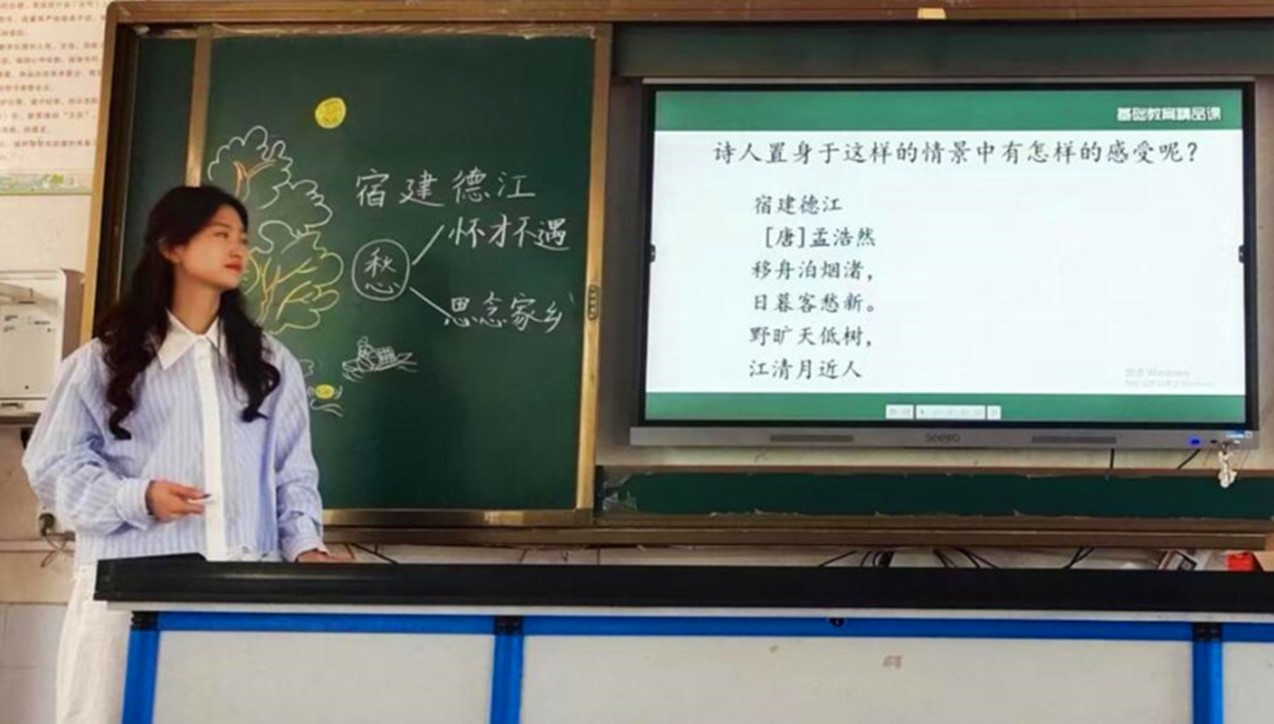 宿建德江
愁
怀才不遇
思念家乡
基础教育精品课
诗人置身于这样的情景中有怎样的感受呢？
宿建德江
［唐］孟浩然
移舟泊烟渚，
日暮客愁新。
野旷天低树，
江清月近人
激活 Windows
seewo